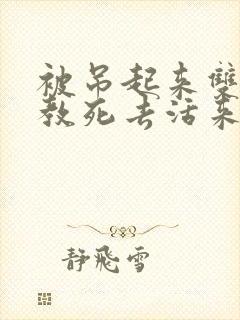 被吊起来双
教死去活来
静飛雪